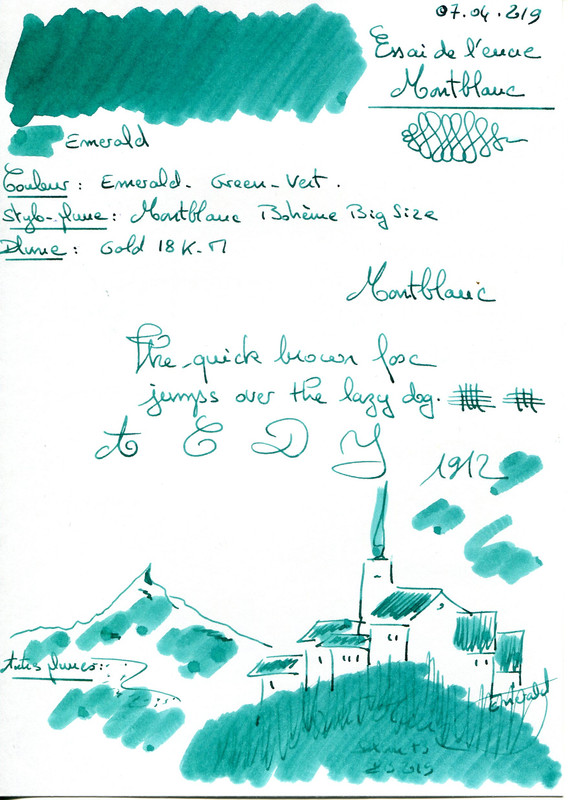 07.04.219
Essai de l'encre
Montblanc
Emerald
Couleur : Emerald - Green - Vert .
Stylo-plume : Montblanc Bohème Big Size
Plume : Gold 18 K - M
Montblanc
The quick brown fox
jumps over the lazy dog.
A E D Y
1912
Autres plumes :
Emerald